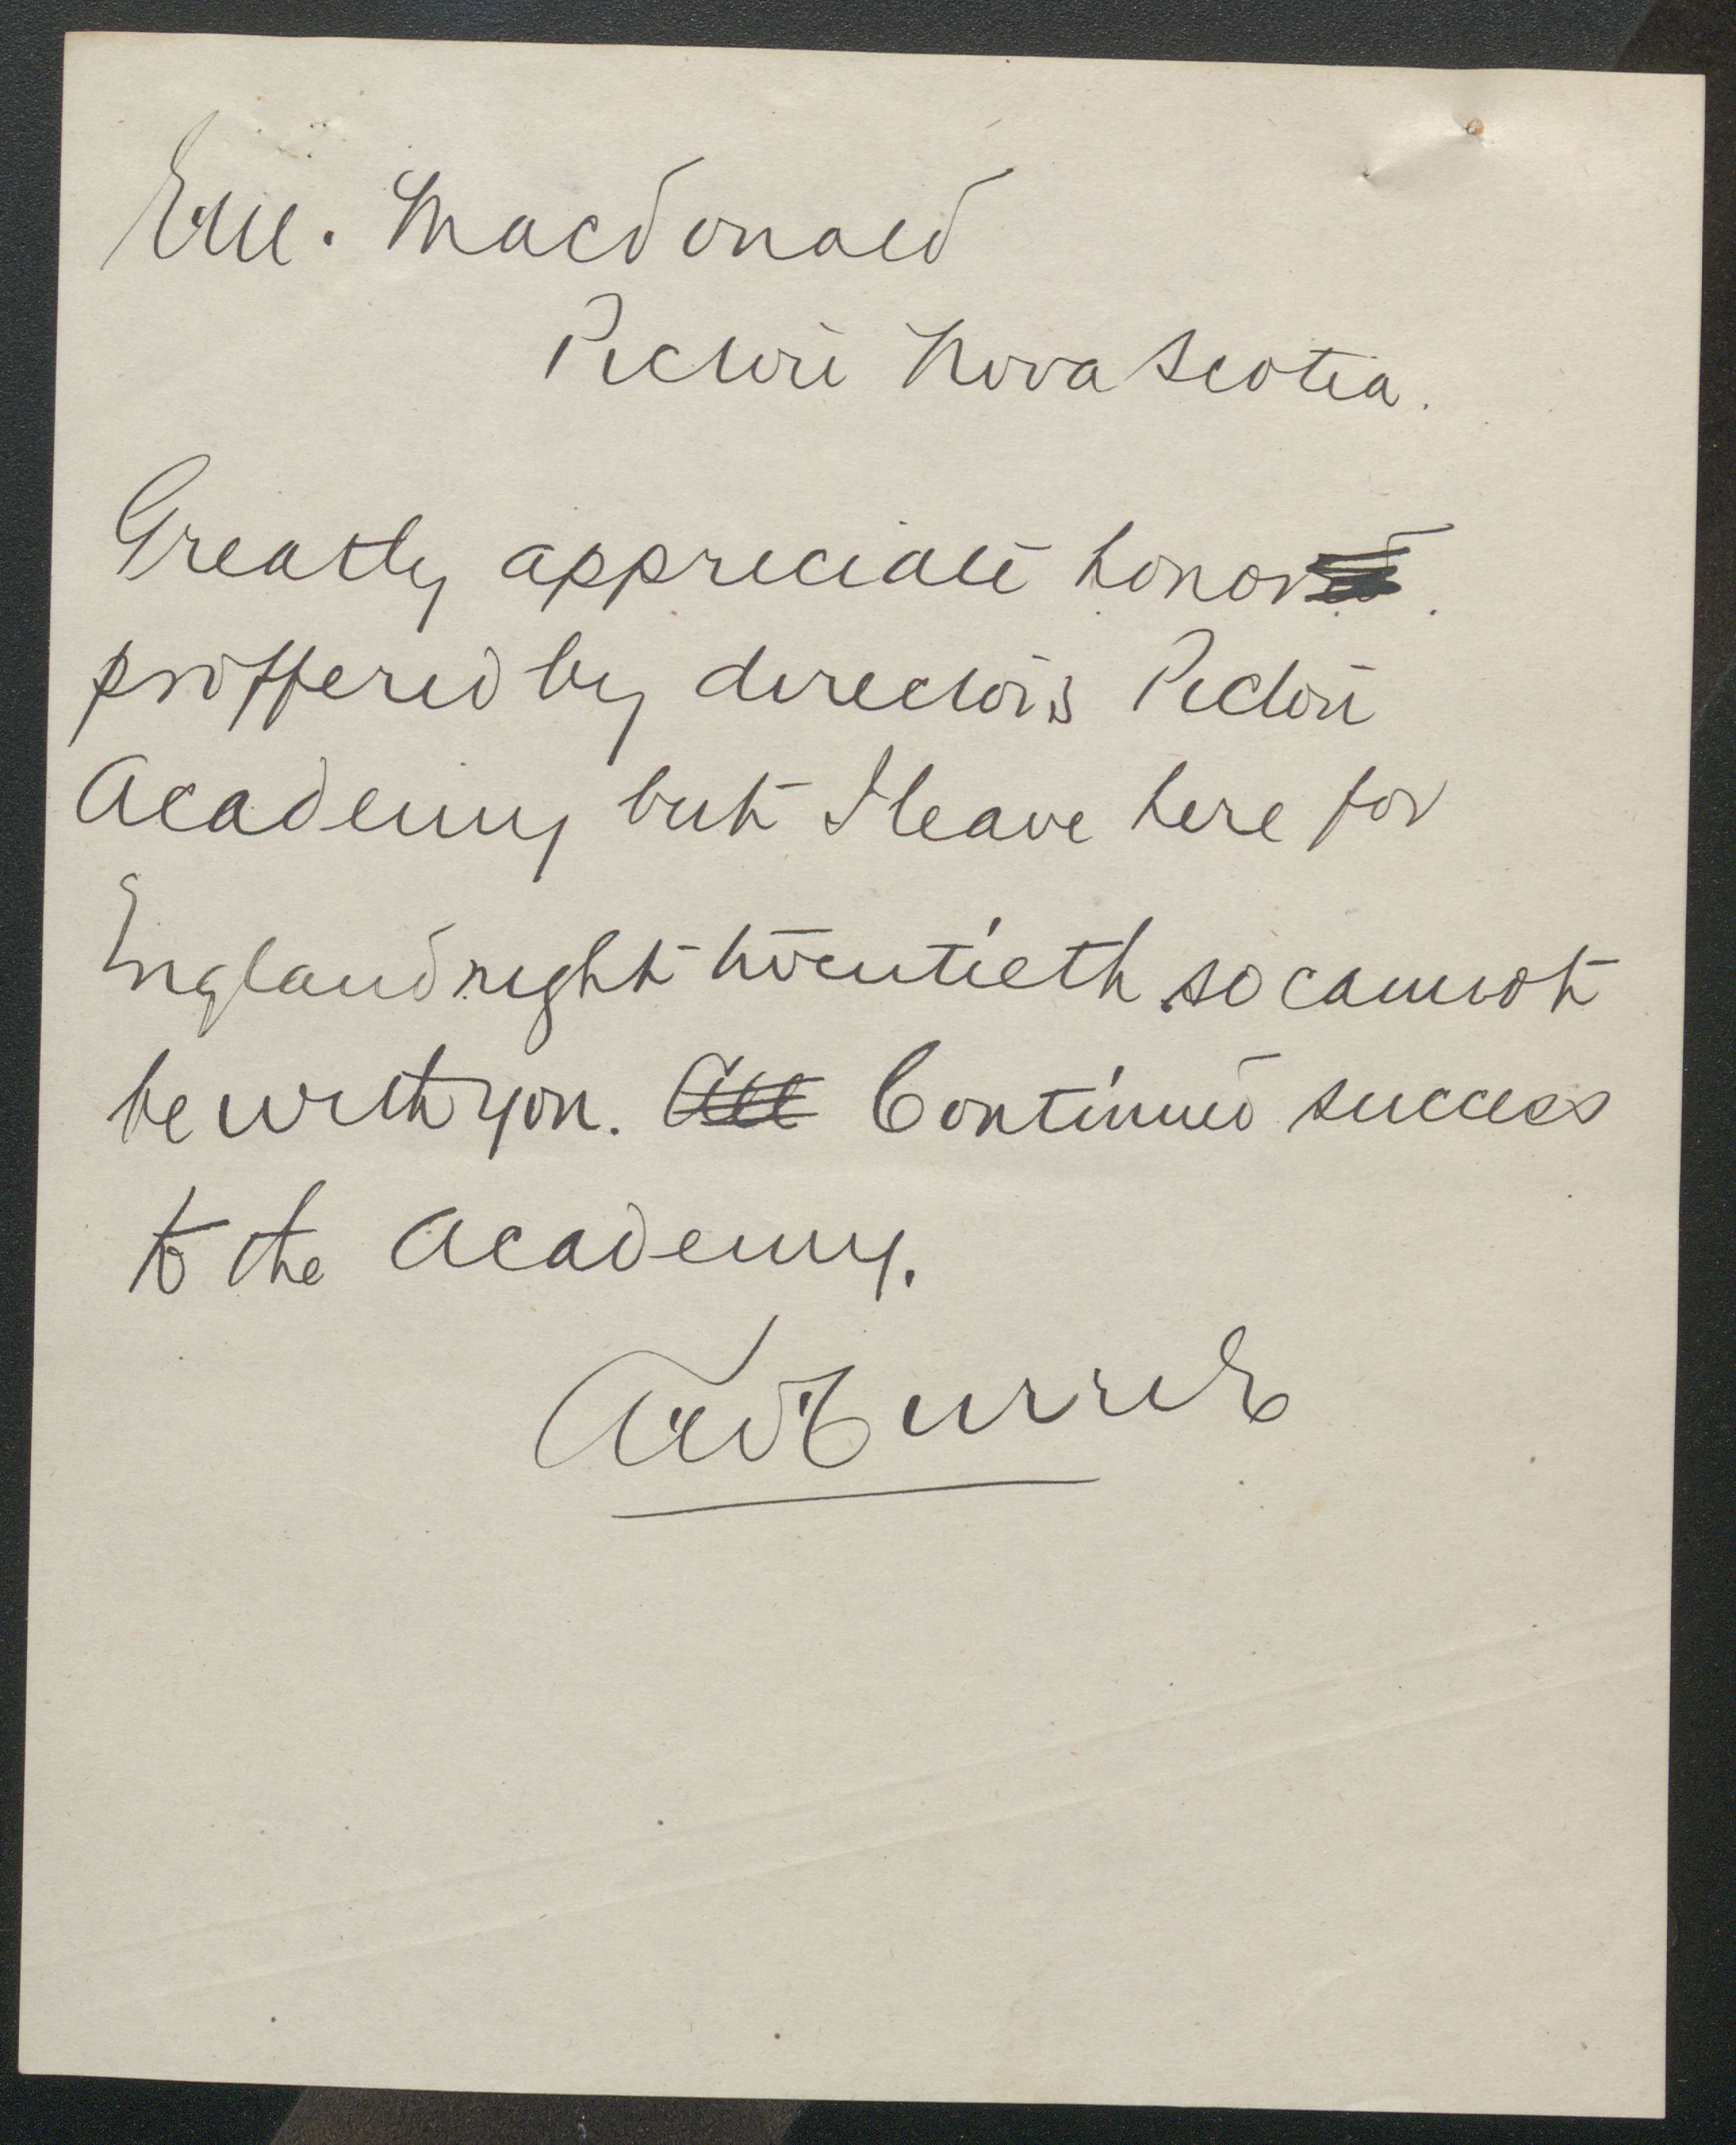 E.M. Macdonald
Pictou Nova Scotia.
Greatly appreciate honor
proffered by directors Pictou
Academy but I leave here for
England night twentieth so cannot
be with you. All Continued success
to the Academy.
Currie